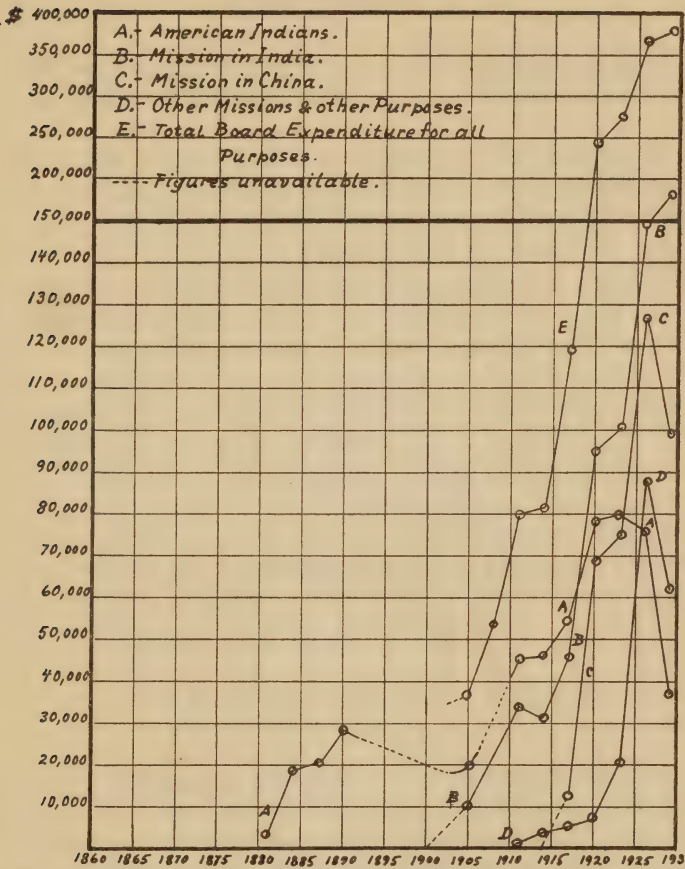 $ 400,000
350,000
300,000
250,000
200,000
150,000
140,000
130,000
120,000
110,000
100,000
90,000
80,000
70,000
60,000
50,000
40,000
30,000
20,000
10,000
A.- American Indians.
B.- Mission in India.
C.- Mission in China.
D.- Other Missions & other Purposes.
E.- Total Board Expenditure for all
Purposes.
---- Figures unavailable.
B
C
E
D
A
A
B
C
A
B
D
1860 1865 1870 1875 1880 1885 1890 1895 1900 1905 1910 1915 1920 1925 193